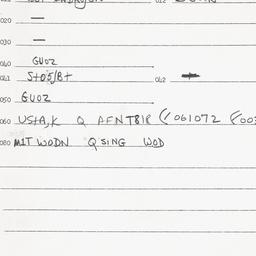 020 —
030 —
040 GUOZ
041 S+05/8+ 042
050 GUOZ
060 US+A,K Q AFNT818 (/061072 F003
080 MIT WODN QSING WOD